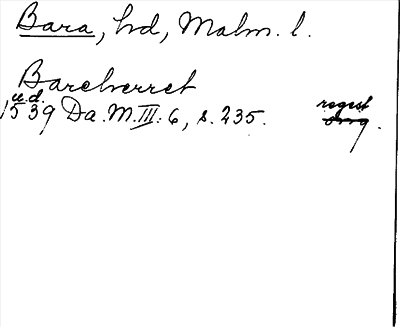 Bara, hd, Malm. l.
Bareherret
u.d.
1539 Da. M. III: 6, s. 235. regest
orig.